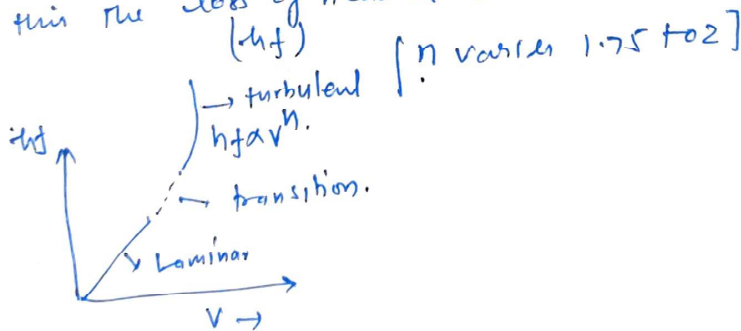 this the loss of
(hf)
→ turbulent [n varies 1.75 to 2]
hf α vⁿ.
hf
→ transition.
Laminar
V →